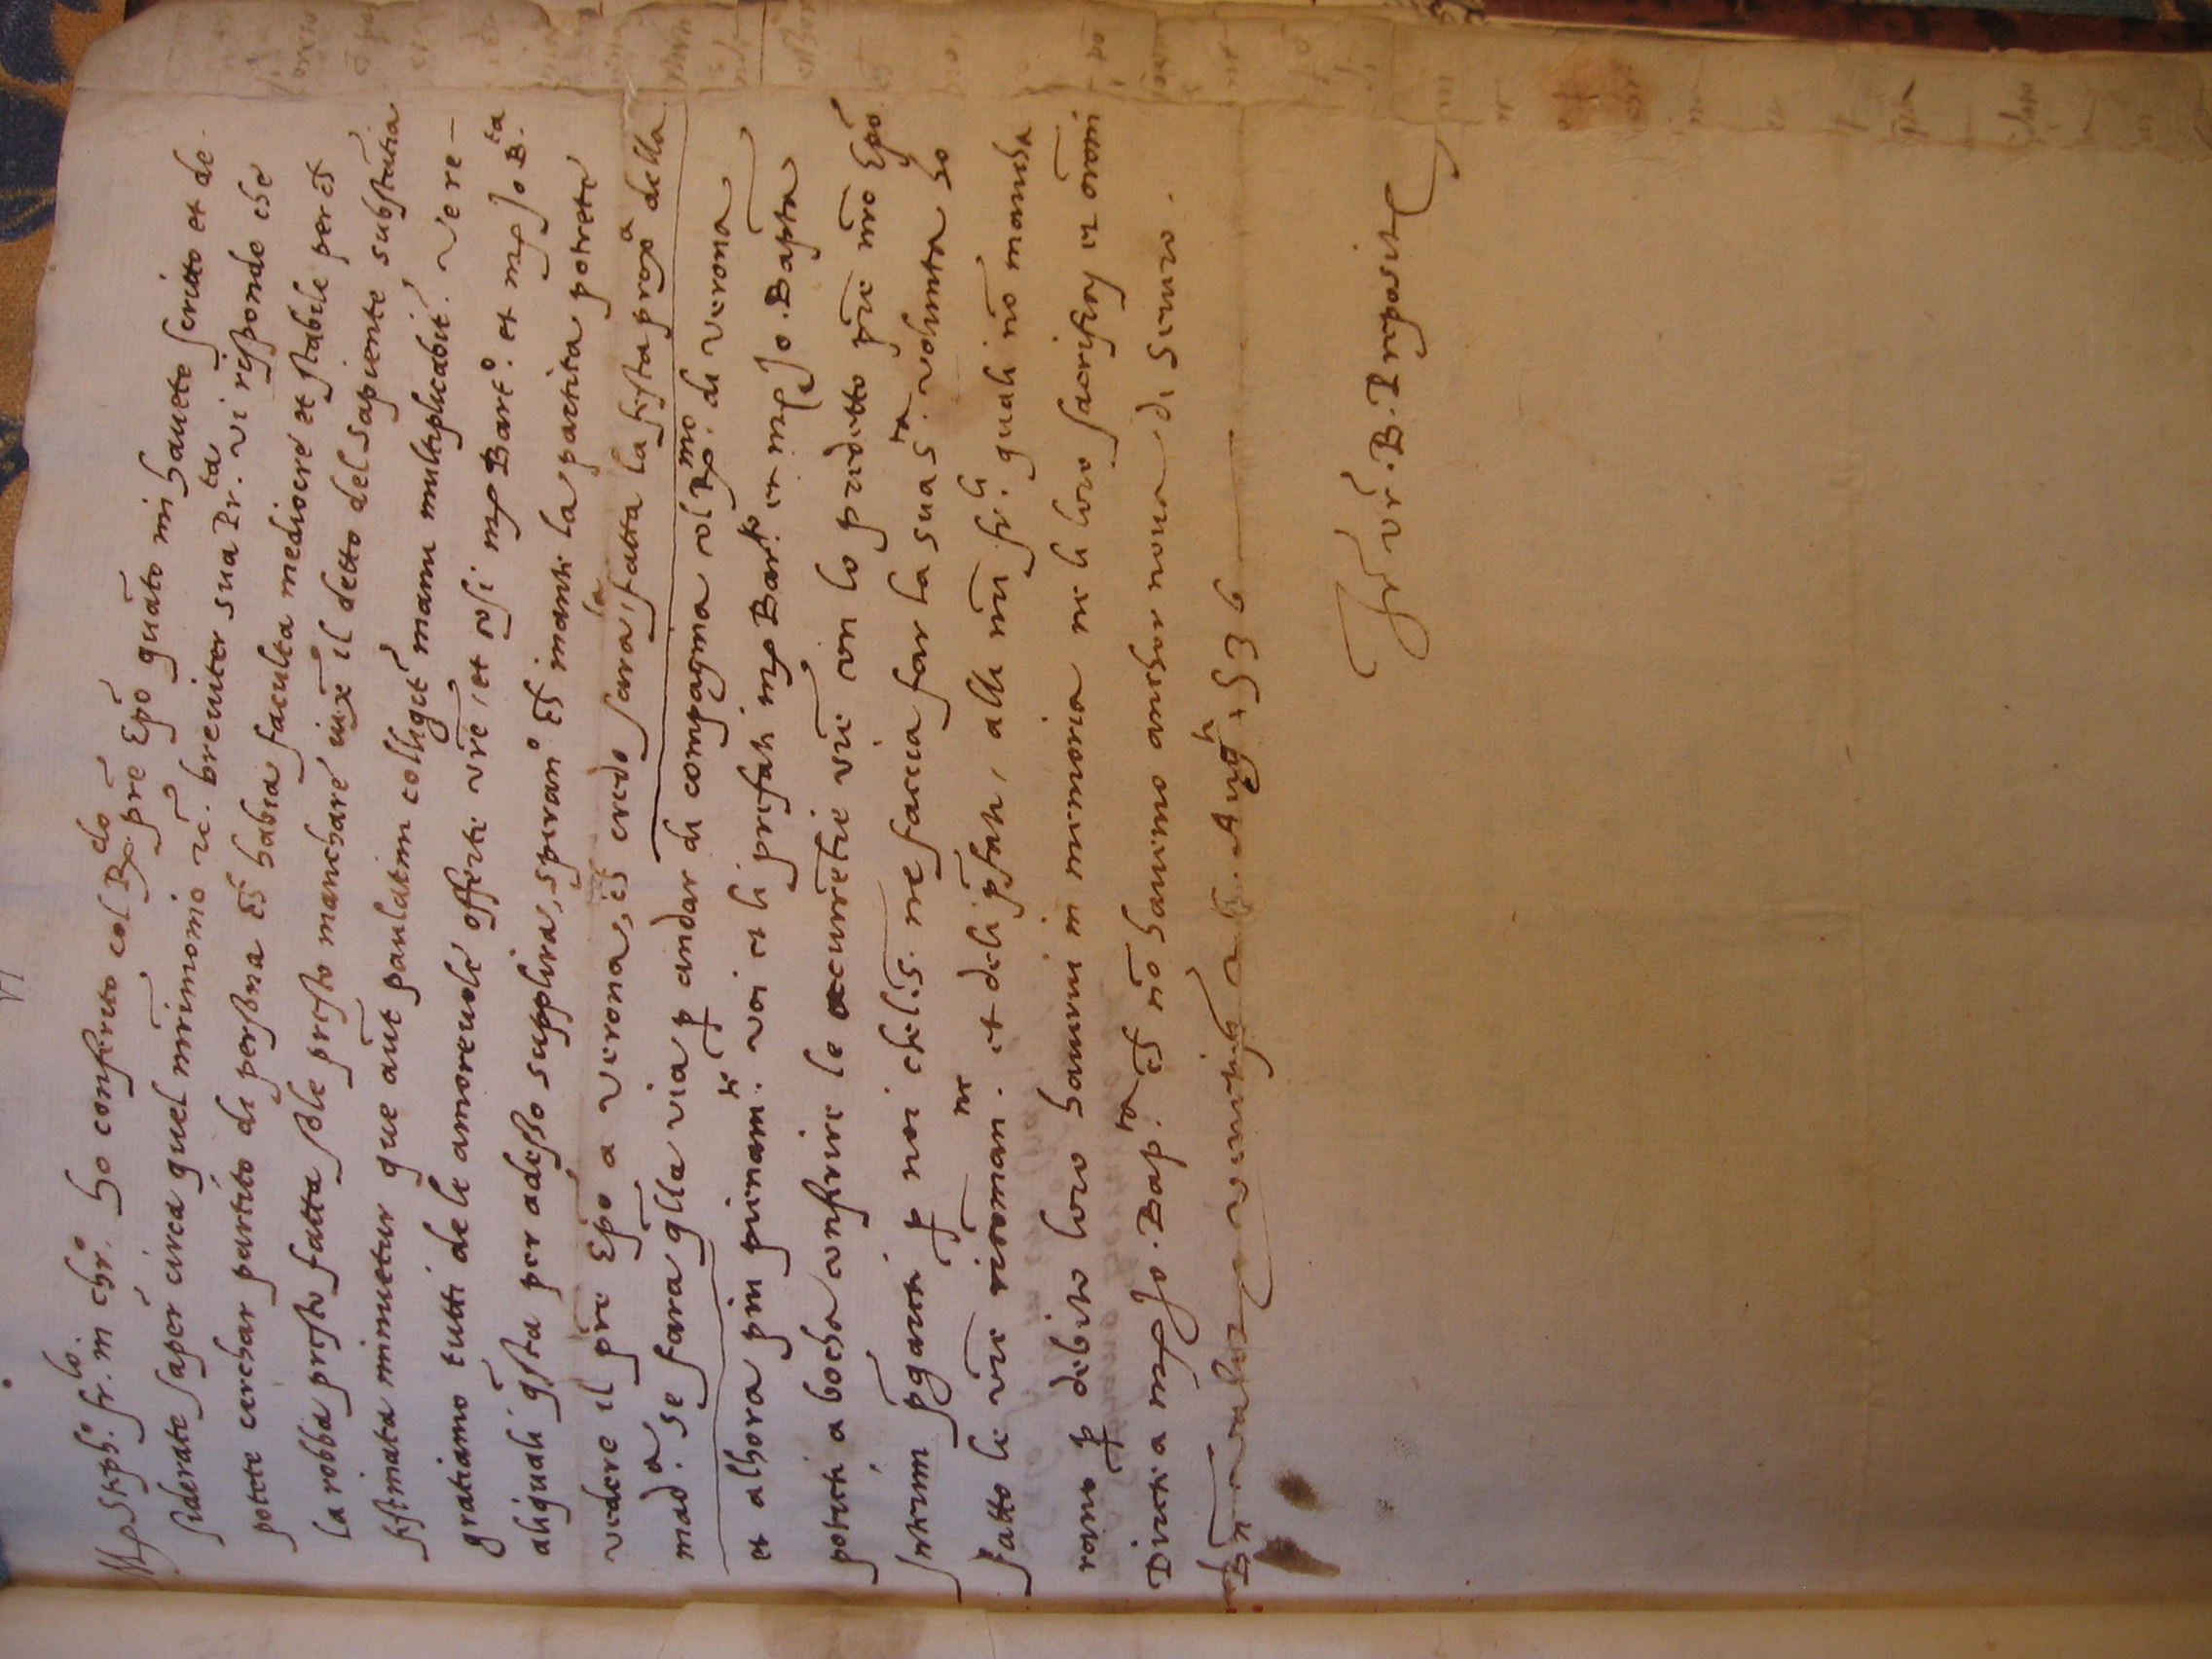 Mp Steph.º fr.lo in chrº. Ho conferito col Rdo prē Epō quāto mi havete scritto et de-
siderate saper circa quel mrimonio rē. breviter sua Pr.tà vi risponde che
potete cerchar partito di persona ch̄ habia faculta mediocre et stabile per ch̄
la robba presto fatta sōle presto manchare iuxᵃ il detto del sapiente substātia
festinata minuetur que aūt paulatim colligit̄ manu multiplicabit̄. Ve re-
gratiamo tutti de le amorevole offerte vr̄e, et cosi mp Bart.º et mp Jo B.ta
aliquali q̄sta per adesso supplira, sperano ch̄ inanti la partita potrete
vedere il prē Epō a verona, ch̄ credo sara fatta la festa proxᵃ della
mad.ᵃ se fara q̄lla via p andar di compagnia col Rmo. di verona
et alhora pm̄ pienam.te voi et li prefati mp Bar.to et mp Jo. Bapta
potreti a bocha conferire le occurrētie vr̄e con lo predetto prē nr̄o Epō
Intrim pgareti p noi chel S. ne faccia far la sua S.ta volunta ho
fatto le vr̄e racoman.ne et deli p̄fati, alli nr̄i fr.li quali nō mancha
rano p debito loro havervi in memoria ne li loro sacrificy et orōni
Direti a mp Jo. Bap.ta ch̄ nō havemo anchor nova di
1536
fr̄ vr̄. B. Preposito